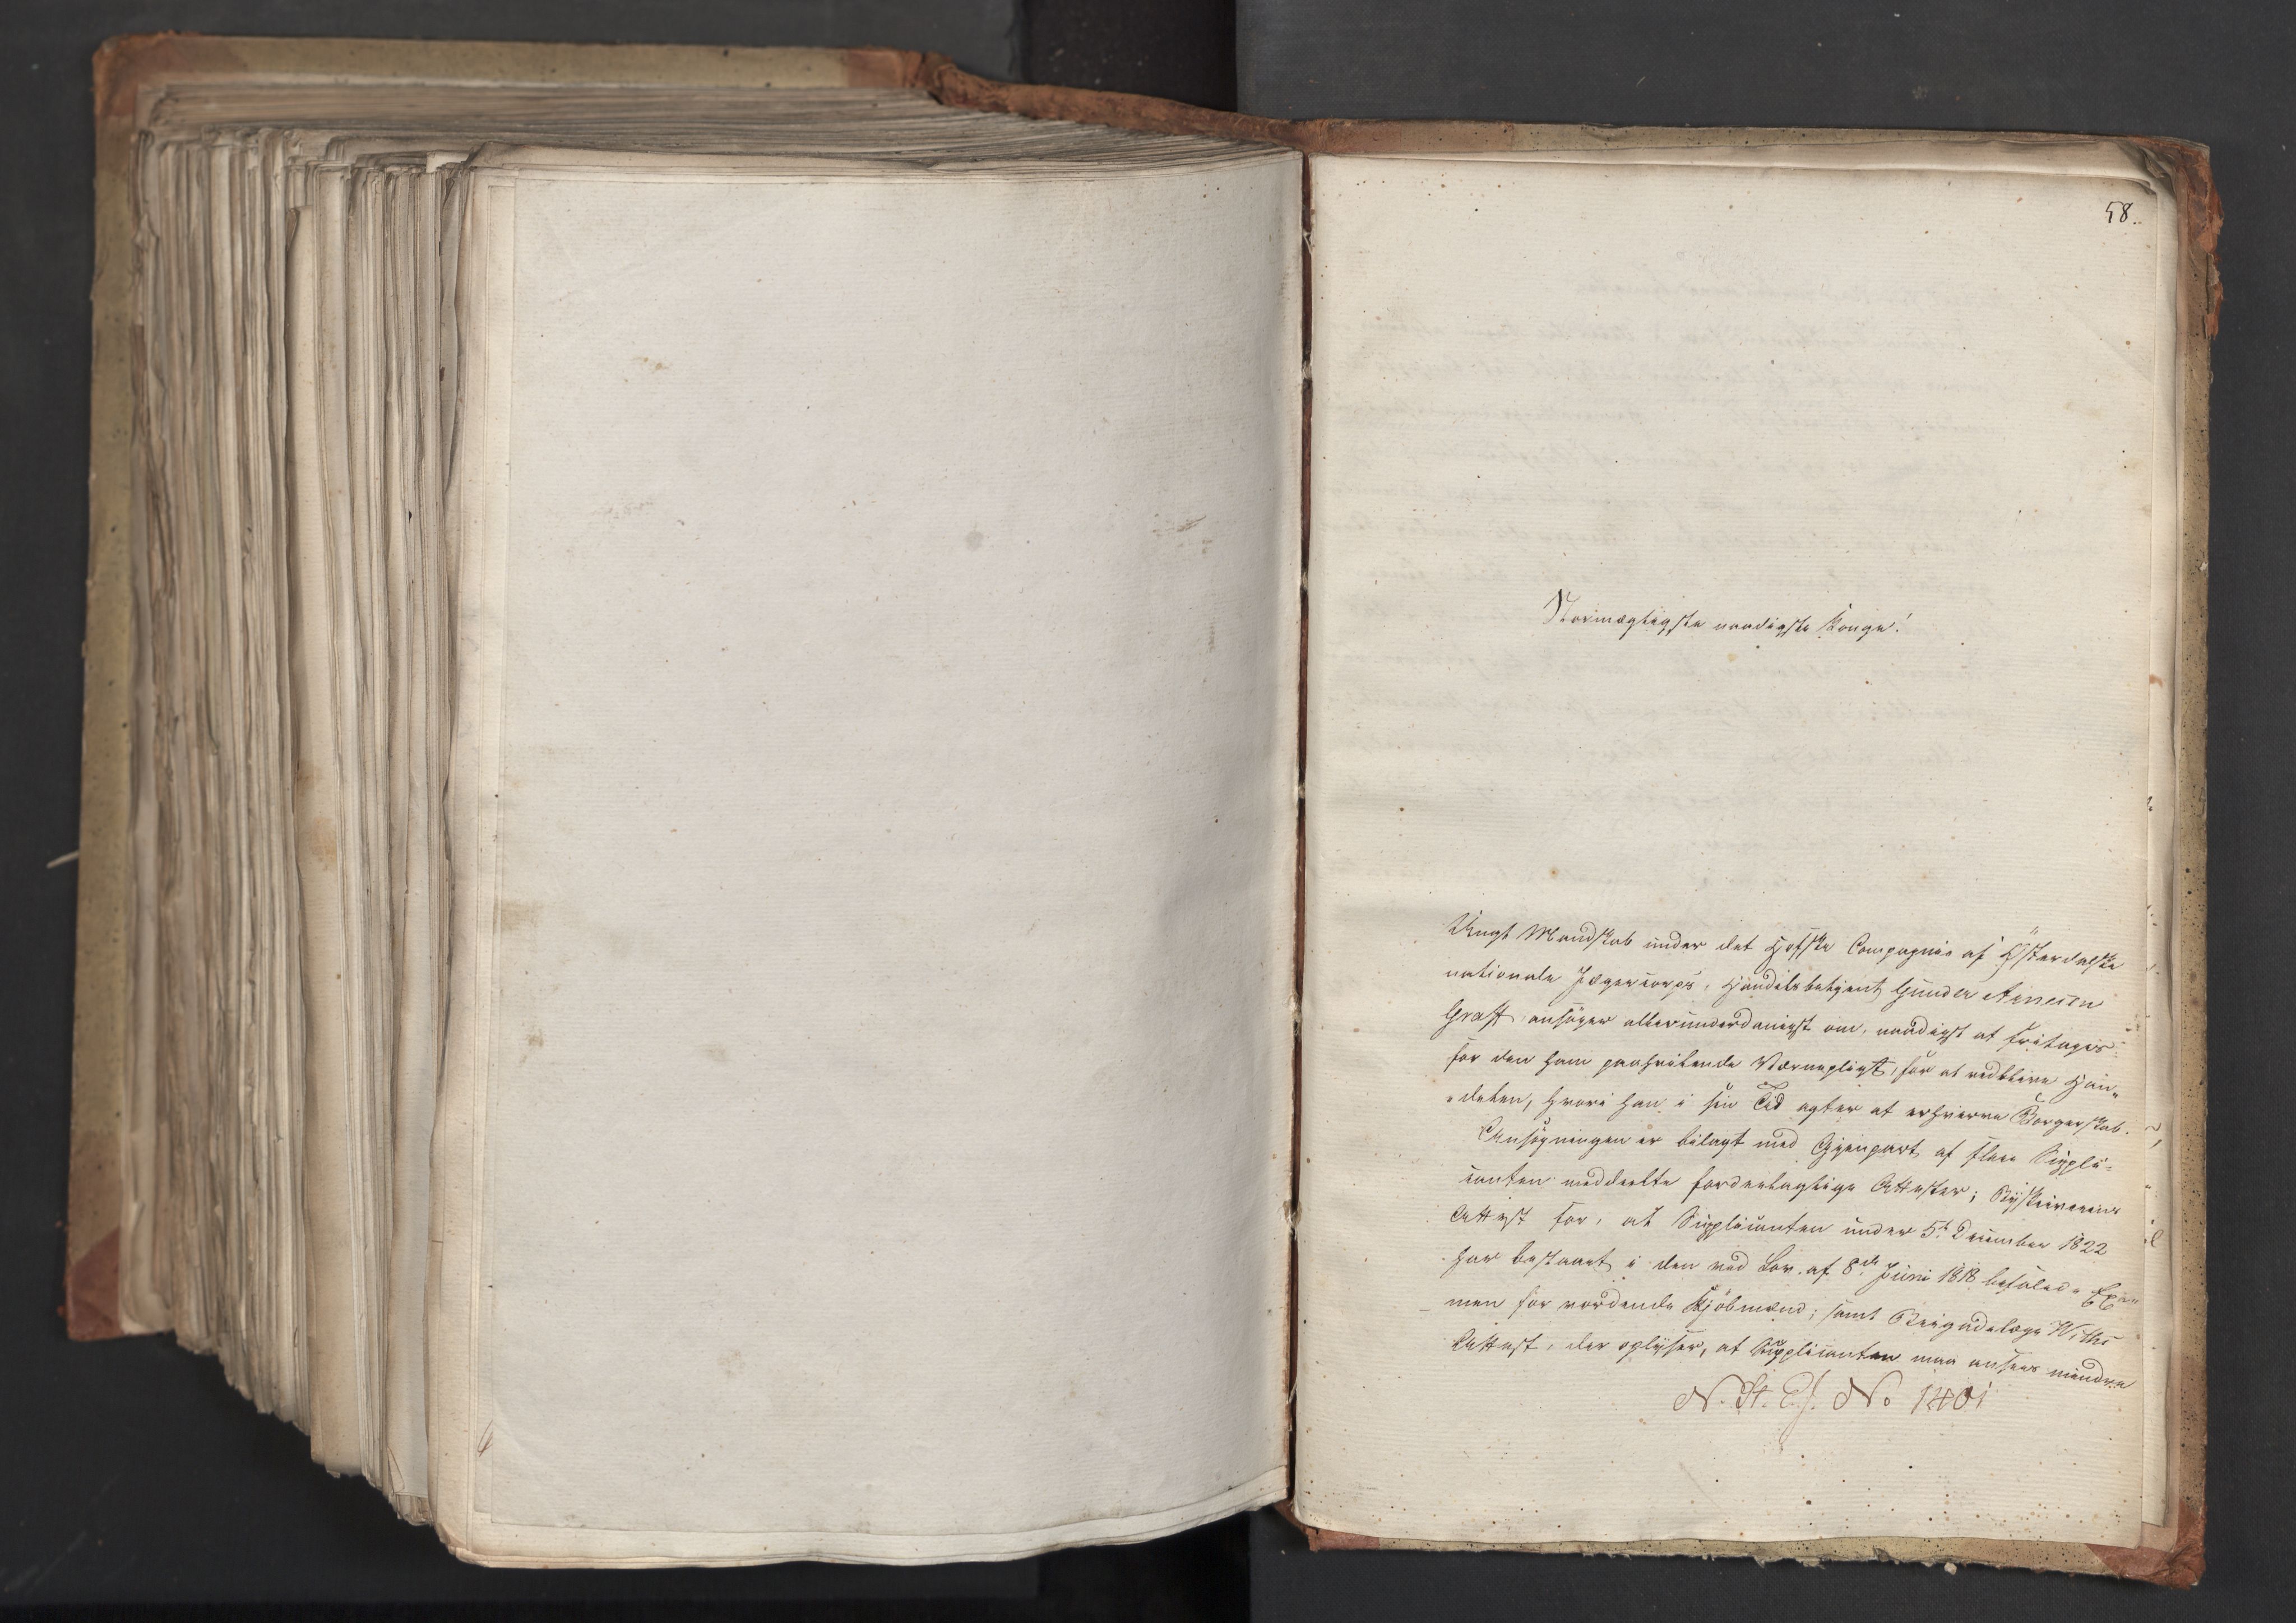 58.
Stormægtigste naadigste Konge!
Ungt Mandskab under det Hofske Compagnie af Østerdalske
nationale Jægercorps, Handelsbetjent Gunder Arnesen
Graff ansøger allerunderdanigst om, naadigst at fritages
for den ham paahvilende Værnepligt, for at vedblive Han„
„delen, hvori han i sin Tid agter at erhverve Borgerskab.
Ansøgningen er bilagt med Gjenpart af flere Suppli=
canten meddeelte fordeelagtige Attester; Byskriverens
Attest for, at Supplicanten under 5t December 1822
har bestaaet i den ved Lov af 8de Juni 1818 befalede Exa„
men for vordende Kjøbmænd; samt Brigadelæge
Attest, der oplyser, at Supplicanten maa ansees mindre
N. St. E. J. No 1401